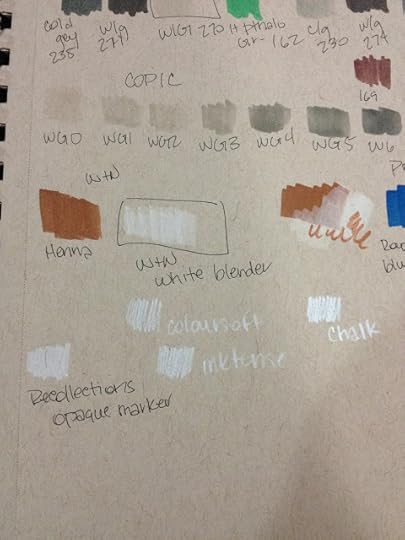 cold grey 235
w/g 271
W/G1 270
H Pthalo Grn 162
c/g 230
w/g 274
169
COPIC
WG0 WG1 WG2 WG3 WG4 WG5 W6
W+N
Henna
W+N white blender
coloursoft
chalk
inktense
Recollections
opaque marker